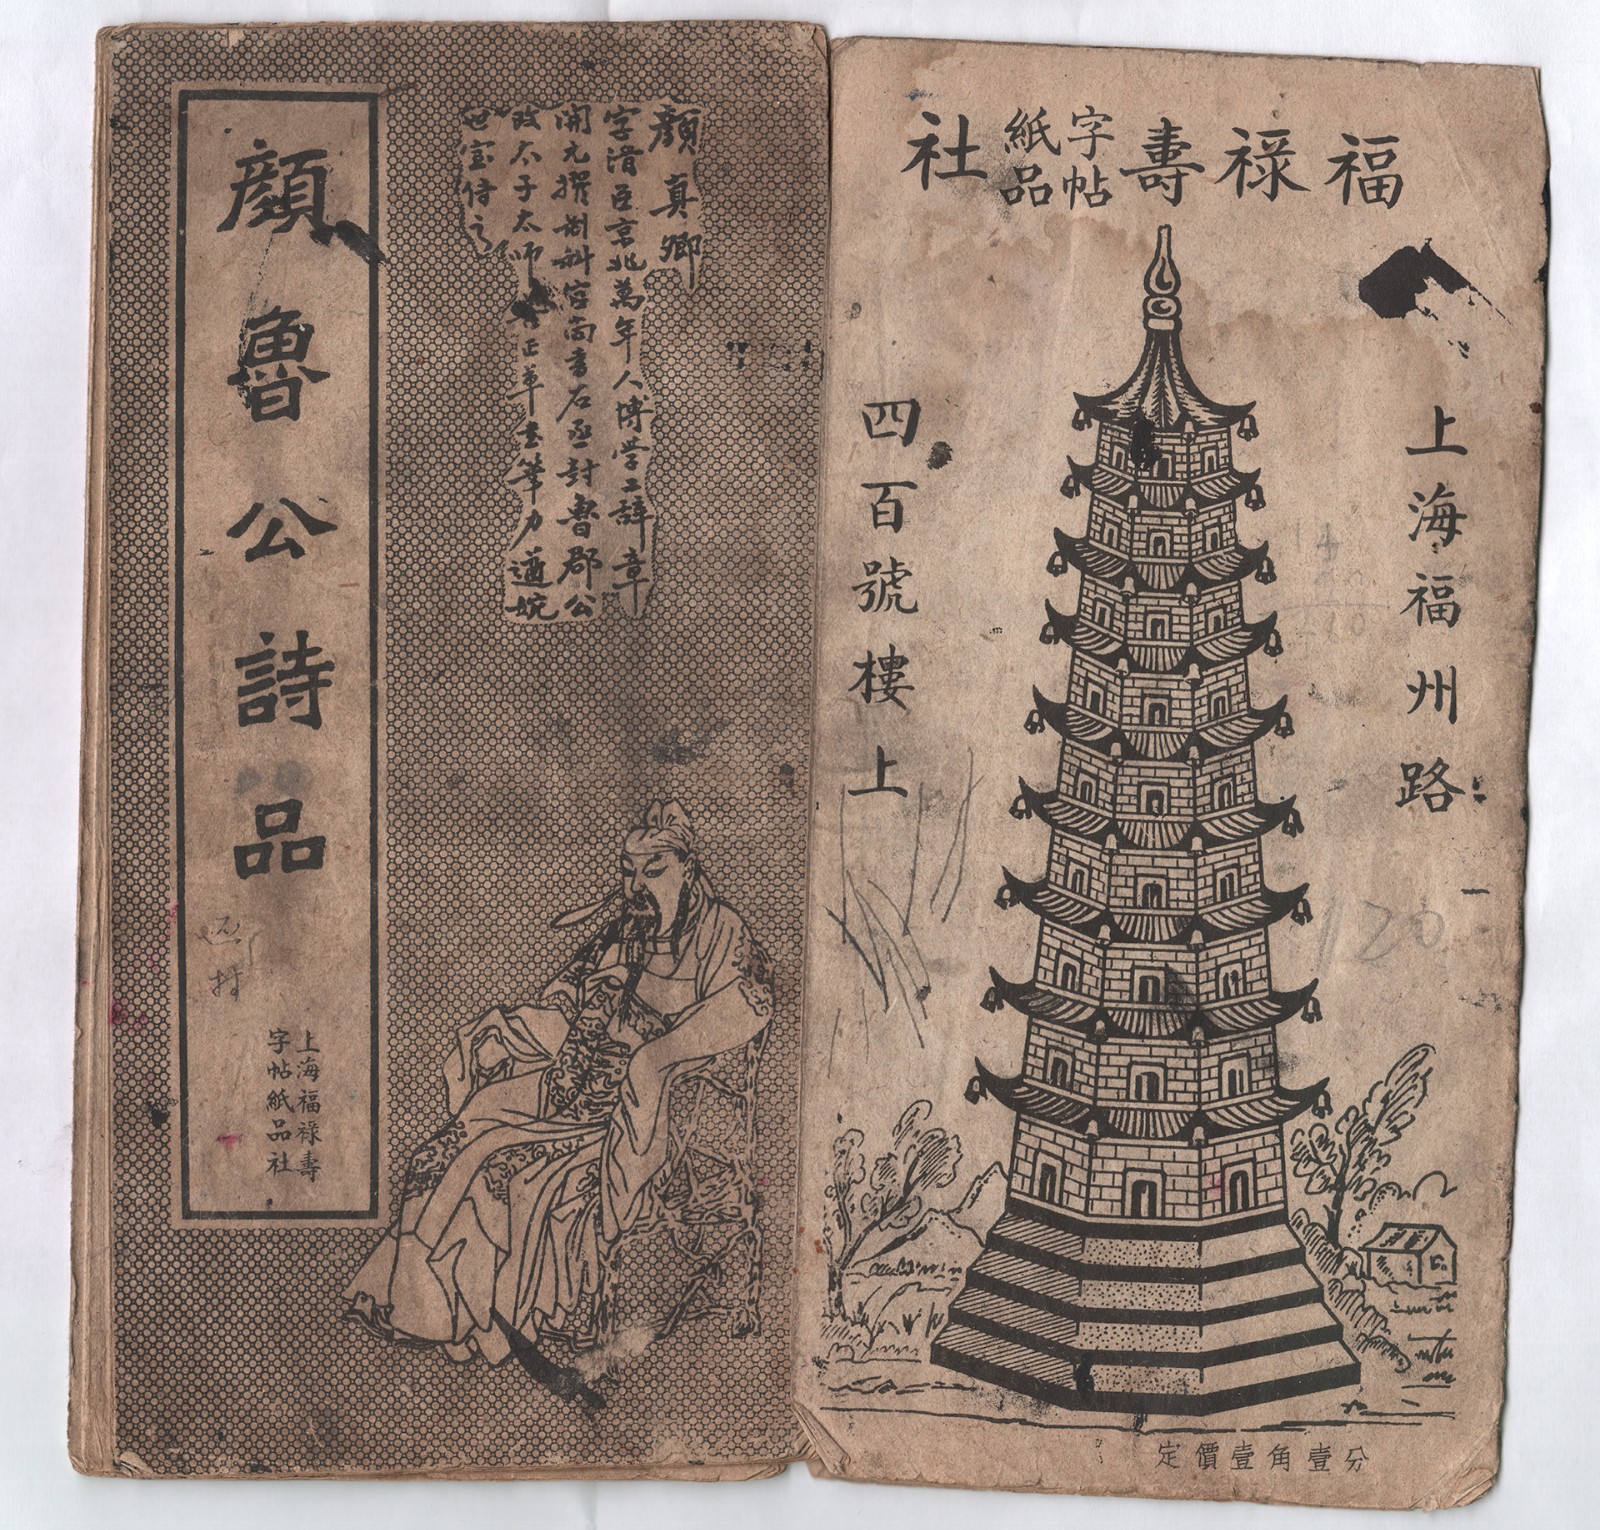 顏魯公詩品
上海福祿壽
字帖紙品社
顏真卿
字清臣京兆萬年人博學工辭章
開元撰制科官尚書右丞封魯郡公
改太子太師善正草書筆力遒婉
世宝傳之
福祿壽字帖紙品社
上海福州路
四百號樓上
定價壹角壹分
120